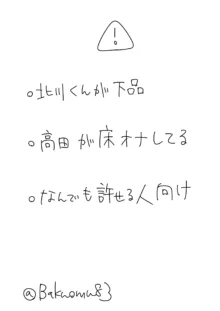 !
○北川くんが下品
○高田が床オナしてる
○なんでも許せる人向け
@Bakuomu83